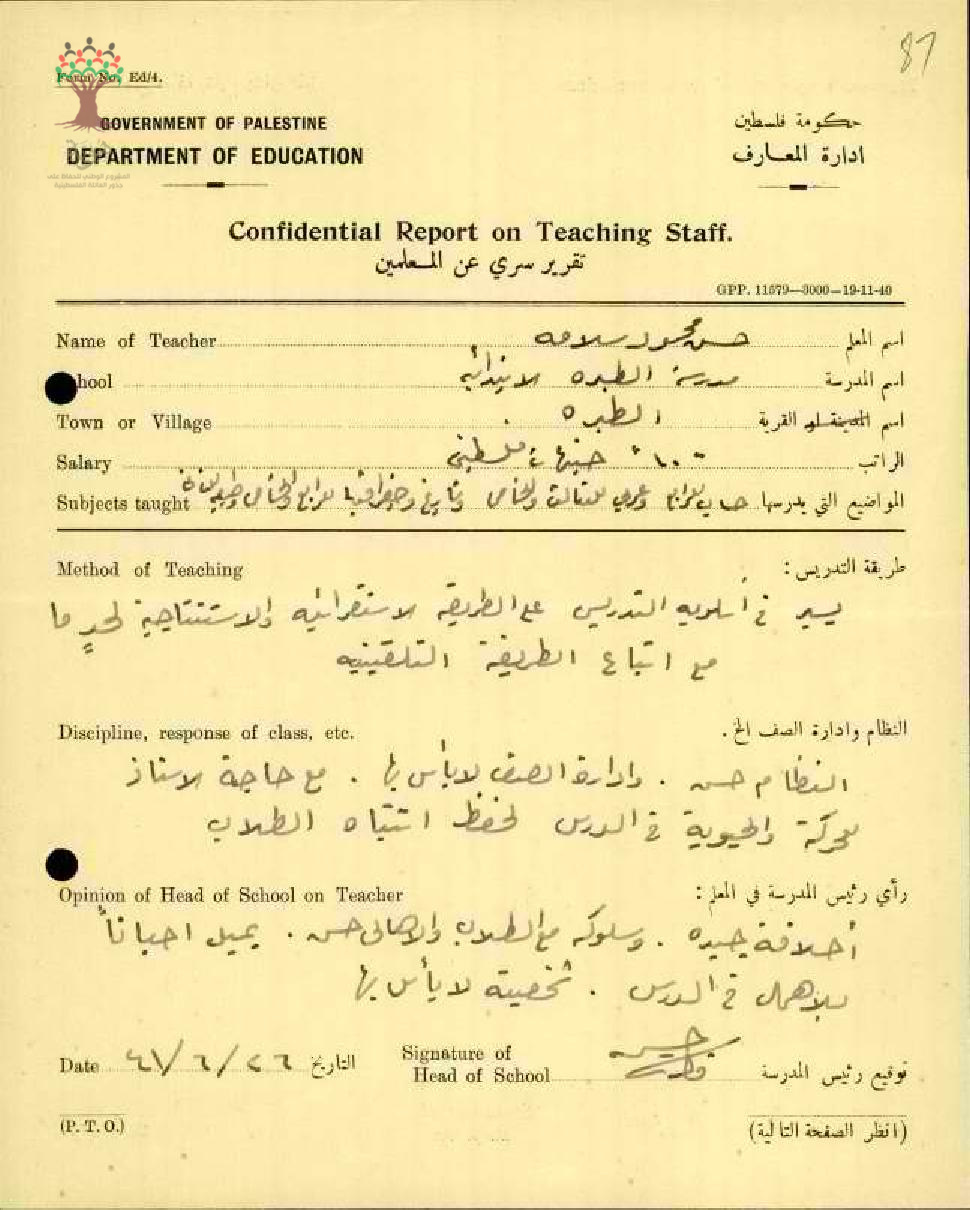 87
Form No. Ed/4.
GOVERNMENT OF PALESTINE
حكومة فلسطين
DEPARTMENT OF EDUCATION
ادارة المعارف
المشروع الوطني للحفاظ على
جذور العائلة الفلسطينية
Confidential Report on Teaching Staff.
تقرير سري عن المعلمين
GPP. 11679—3000—19-11-40
Name of Teacher حسن محمود سلامه اسم المعلم
School مدرسة الطيره الابتدائيه اسم المدرسة
Town or Village الطيره اسم المدينة او القرية
Salary ١٠ جنيهات فلسطيني الراتب
Subjects taught حساب للرابع وعربي للثالث والخامس وتاريخ وجغرافيا للرابع والخامس المواضيع التي يدرسها
Method of Teaching طريقة التدريس :
يسير في أسلوبه التدريس على الطريقه الاستقرائيه والاستنتاجية لحدٍ ما
مع اتباع الطريقة التلقينيه
Discipline, response of class, etc. النظام وادارة الصف الخ .
النظام حسن . وادارة الصف لا بأس بها . مع حاجة الاستاذ
للحركة والحيوية في الدرس لحفظ انتباه الطلاب
Opinion of Head of School on Teacher رأي رئيس المدرسة في المعلم :
أخلاقه جيده . وسلوكه مع الطلاب والاهالي حسن . يميل احياناً
للاهمال في الدرس . شخصيته لا بأس بها
Date ٢٦/٦/٤١ التاريخ
Signature of Head of School توقيع رئيس المدرسة
(P. T. O.) (انظر الصفحة التالية)